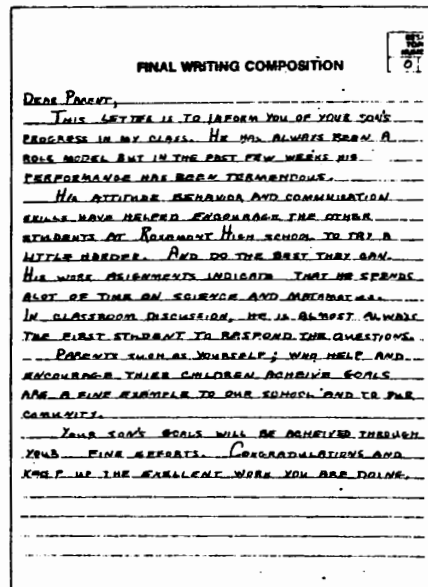 FINAL WRITING COMPOSITION
DEAR PARENT,
THIS LETTER IS TO INFORM YOU OF YOUR SON'S
PROGRESS IN MY CLASS. HE HAS ALWAYS BEEN A
ROLE MODEL BUT IN THE PAST FEW WEEKS HIS
PERFORMANCE HAS BEEN TERMENDOUS.
HIS ATTITUDE BEHAVIOR AND COMMUNICATION
SKILLS HAVE HELPED ENCOURAGE THE OTHER
STUDENTS AT ROSAMONT HIGH SCHOOL TO TRY A
LITTLE HARDER. AND DO THE BEST THEY CAN.
HIS WORK ASIGNMENTS INDICATE THAT HE SPENDS
ALOT OF TIME ON SCIENCE AND
IN CLASSROOM DISCUSSION, HE IS ALMOST ALWAYS
THE FIRST STUDENT TO RESPOND THE QUESTIONS.
PARENTS SUCH AS YOURSELF; WHO HELP AND
ENCOURAGE THIER CHILDREN ACHEIVE GOALS
ARE A FINE EXAMPLE TO OUR SCHOOL AND TO OUR
COMUNITY.
YOUR SON'S GOALS WILL BE ACHEIVED THROUGH
YOUR FINE EFFORTS. CONGRADULATIONS AND
KEEP UP THE EXELLENT WORK YOU ARE DOING.